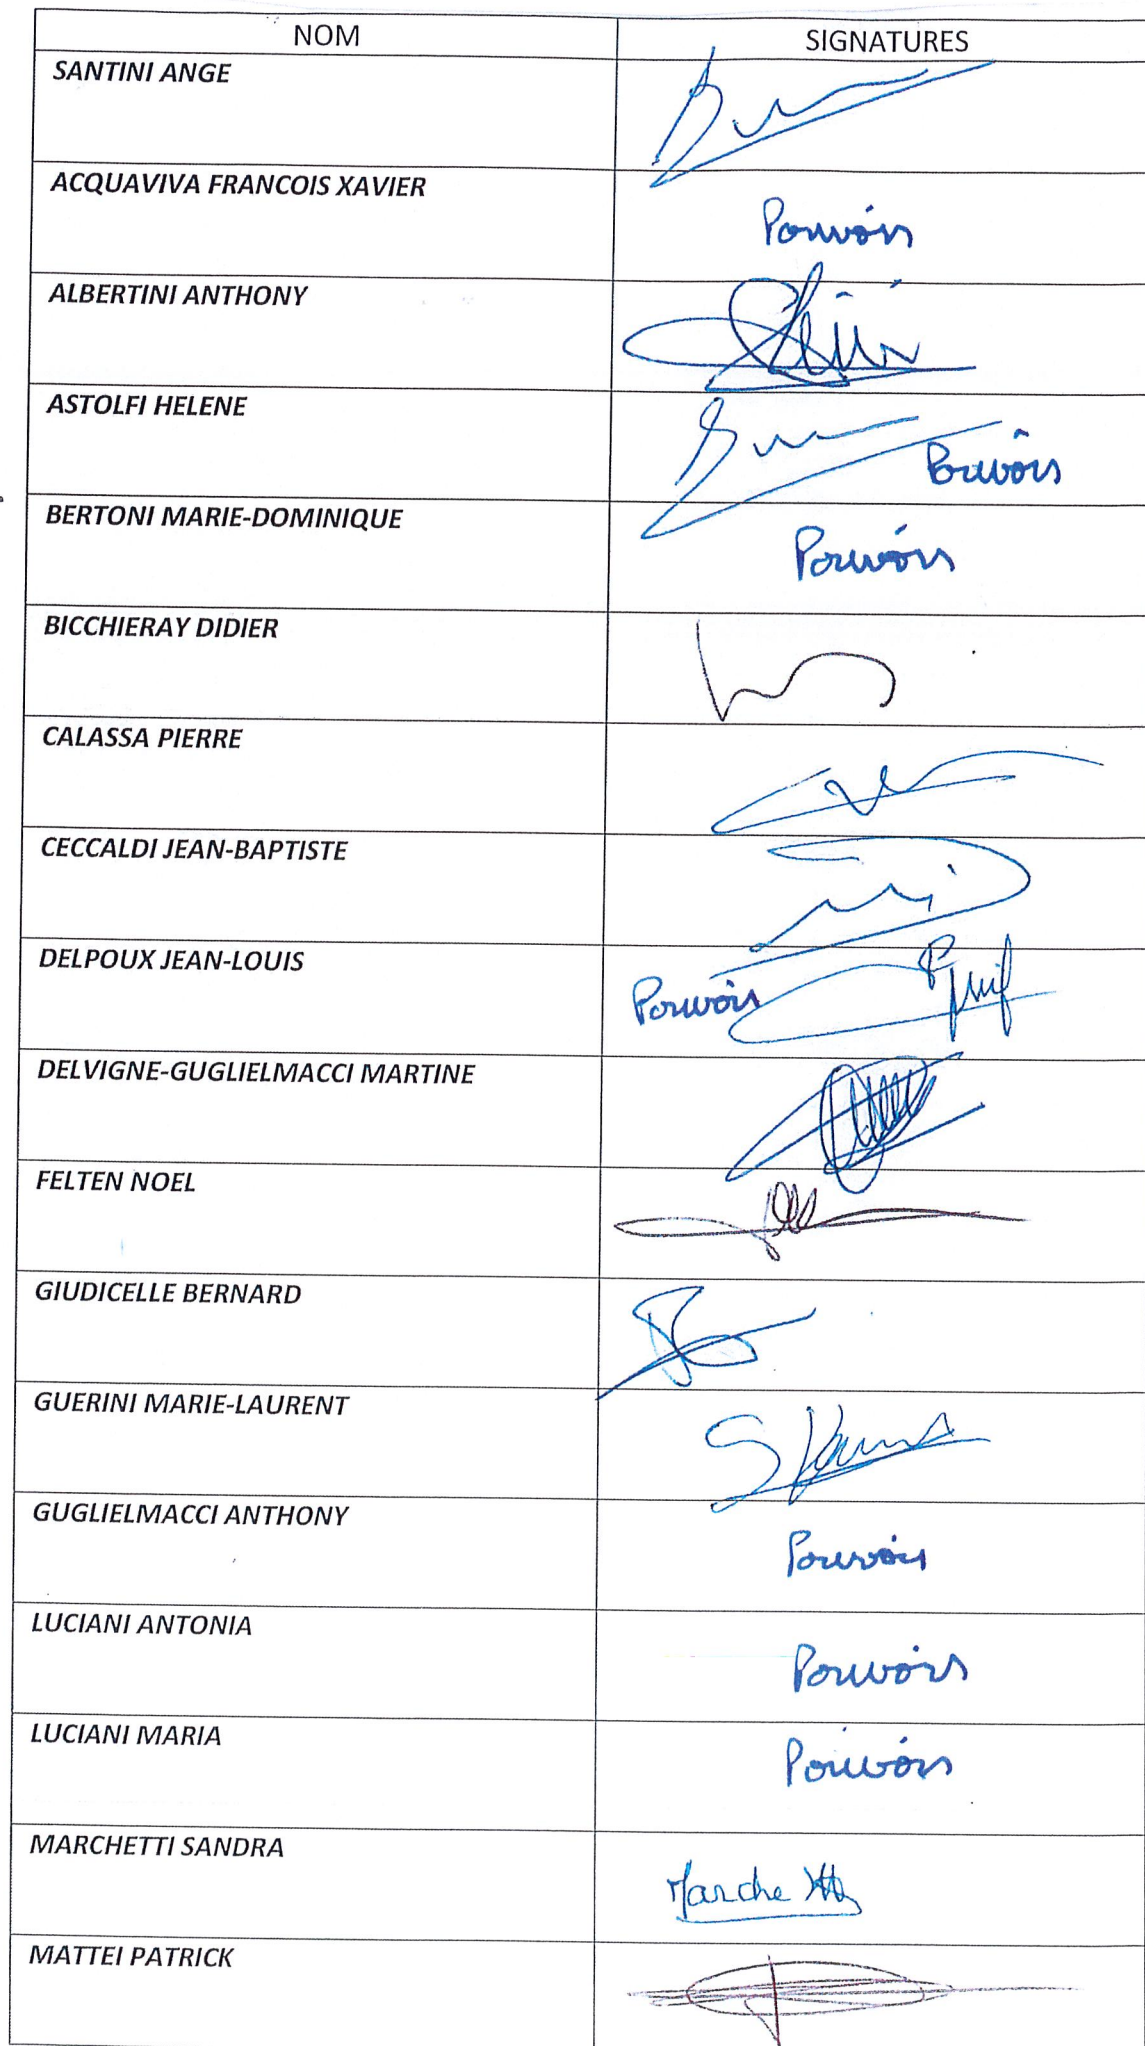 NOM SIGNATURES
SANTINI ANGE
ACQUAVIVA FRANCOIS XAVIER Pouvoirs
ALBERTINI ANTHONY
ASTOLFI HELENE Pouvoirs
BERTONI MARIE-DOMINIQUE Pouvoirs
BICCHIERAY DIDIER
CALASSA PIERRE
CECCALDI JEAN-BAPTISTE
DELPOUX JEAN-LOUIS Pouvoirs
DELVIGNE-GUGLIELMACCI MARTINE
FELTEN NOEL
GIUDICELLE BERNARD
GUERINI MARIE-LAURENT
GUGLIELMACCI ANTHONY Pouvoirs
LUCIANI ANTONIA Pouvoirs
LUCIANI MARIA Pouvoirs
MARCHETTI SANDRA Marchetti
MATTEI PATRICK